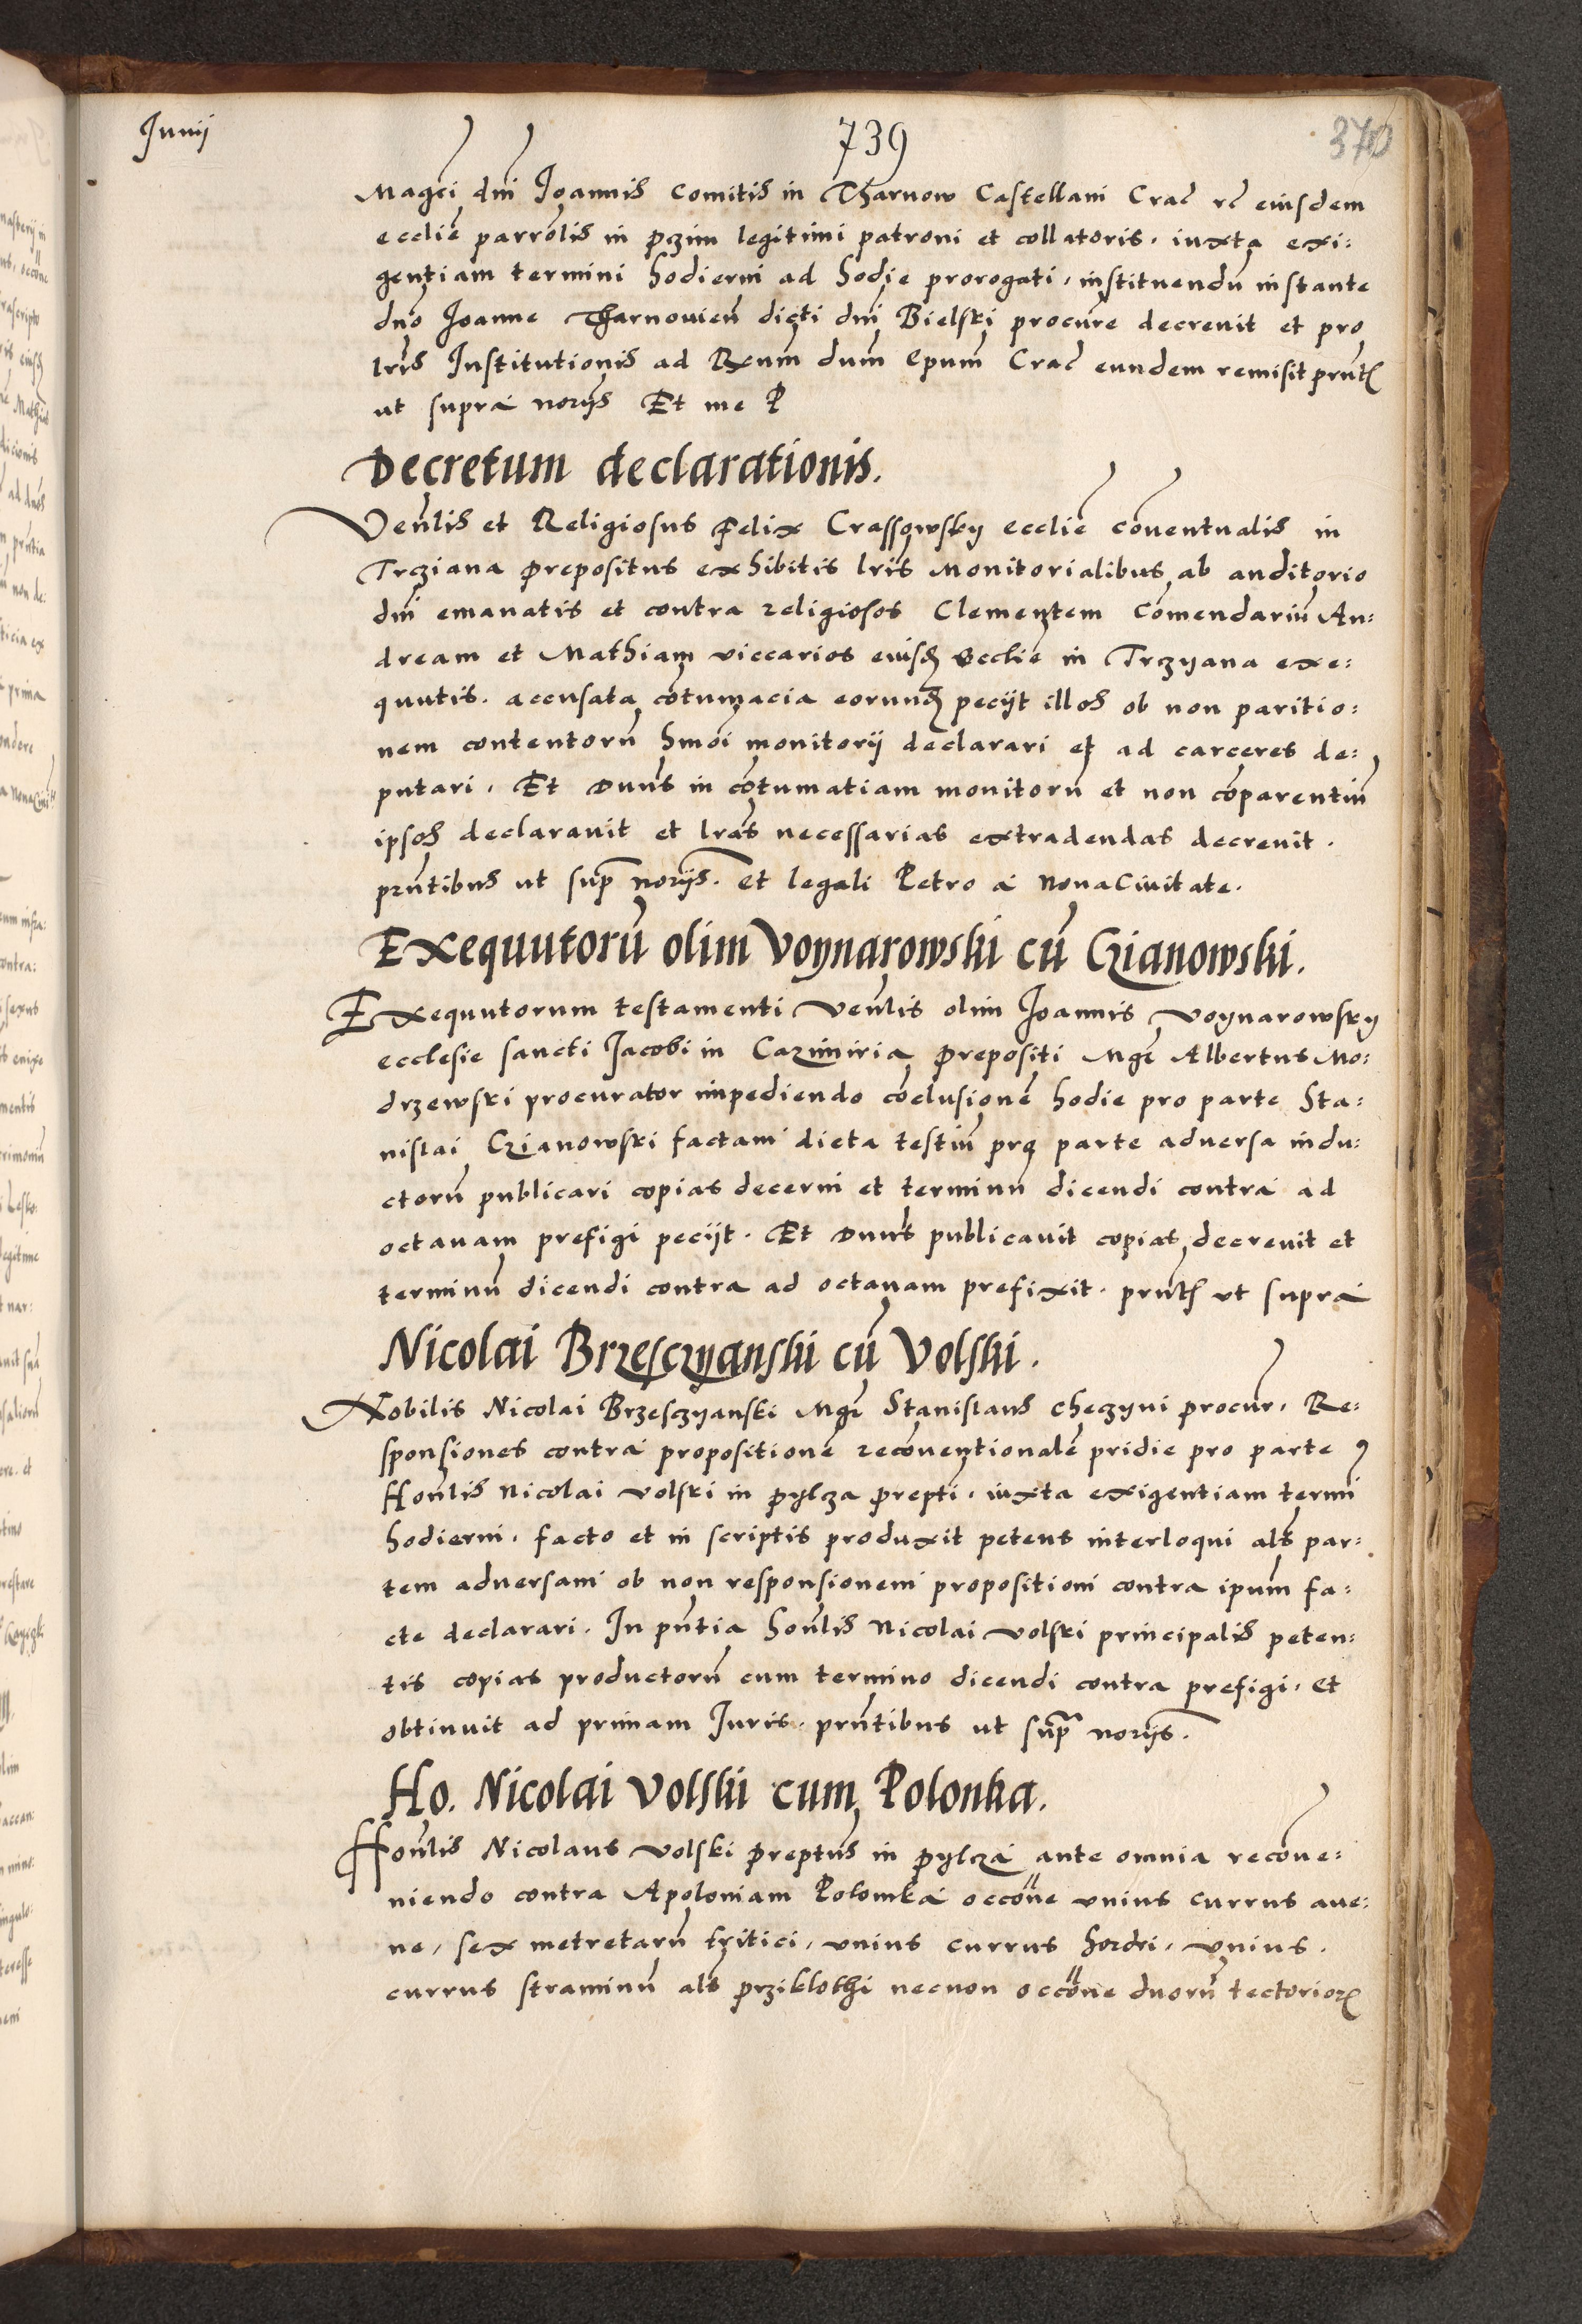 Junij
739
370
Magci dni Joannis Comitis in Tharnow Castellani Crac rc eiusdem
ecclie parrolis in przim legitimi patroni et collatoris, iuxta exi:
gentiam termini hodierni ad hodie prorogati, instituendu instante
dno Joanne Tharnouien dicti dni Bielski procure decreuit et pro
lris Institutionis ad Rxum dum Epum Crac eundem remisit prnt
ut supra norijs Et me P
Decretum declarationis.
Venlis et Religiosus Felix Crassowsky ecclie couentualis in
Trziana prepositus exhibitis lris monitorialibus ab auditorio
dni emanatis et contra religiosos Clementem Comendariu An:
dream et Mathiam viccarios eiusd Ecclie in Trzyana exe:
quutis. accusata cotumacia eorund pecijt illos ob non paritio:
nem contentoru hmoi monitorij declarari et ad carceres de:
putari. Et Duns in cotumatiam monitoru et non coparentiu
ipsos declarauit et lras necessarias extradendas decreuit.
prntibus ut sup norijs. et legali Petro a NouaCiuitate.
Exequutoru olim Voynarowski cu Czianowski.
Exequutorum testamenti venlis olim Joannis voynarowsky
ecclesie sancti Jacobi in Cazimiria prepositi Mgr Albertus Mo:
drzewski procurator impediendo coclusione hodie pro parte Sta:
nislai Czianowski factam dicta testiu pro parte aduersa indu:
ctoru publicari copias decerni et terminu dicendi contra ad
octauam prefigi pecijt. Et Duns publicauit copias decreuit et
terminu dicendi contra ad octauam prefixit. prnt ut supra
Nicolai Brzesczyanski cu Volski.
Nobilis Nicolai Brzesczyanski Mgr Stanislaus checzyni procur. Re:
sponsiones contra propositione recouentionale pridie pro parte
Honlis Nicolai volski in pylcza prepti. iuxta exigentiam termi
hodierni. facto et in scriptis produxit petens interloqui als par:
tem aduersam ob non responsionem propositioni contra ipum fa:
cte declarari. In pntia honlis Nicolai volski principalis peten:
tis copias productoru cum termino dicendi contra prefigi. et
obtinuit ad primam Juris. prntibus ut sup norijs.
Ho. Nicolai Volski cum Polonka.
Honlis Nicolaus volski preptus in pylcza ante omnia recoue:
niendo contra Apoloniam Polonka occone vnius currus aue:
ne, sex metretaru tritici, vnius currus hordei, vnius.
currus straminu als prziklothi necnon occone duoru tectorior